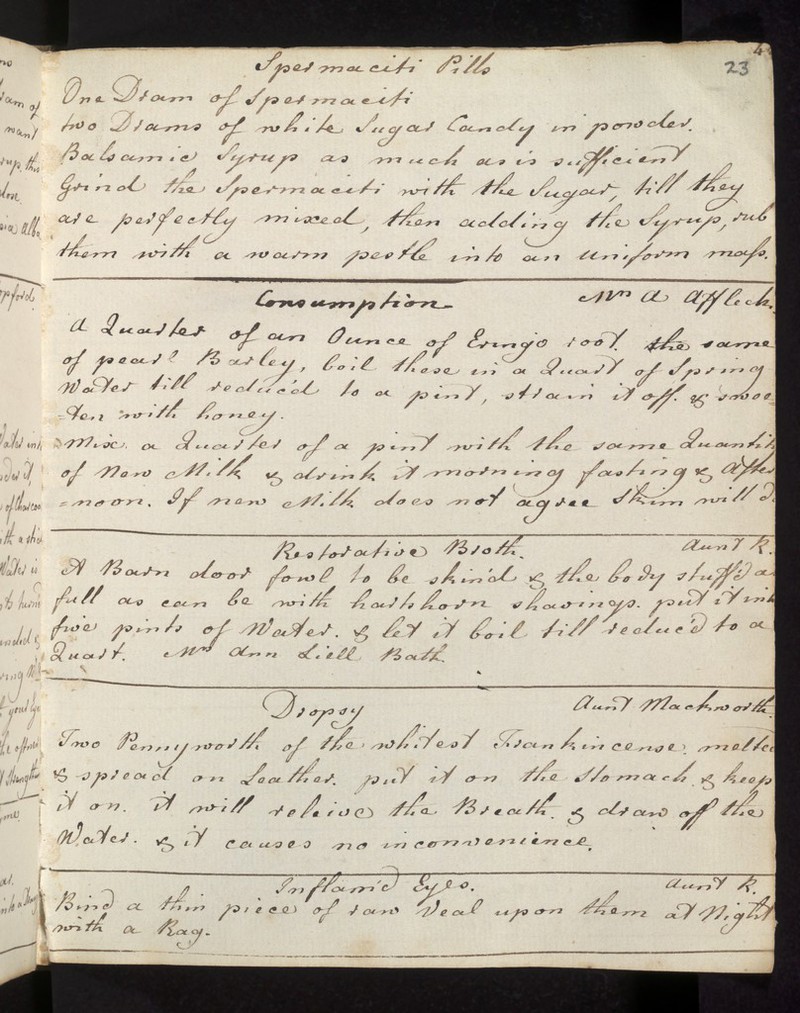 23
Spermaciti Pills
One Dram of Spermaciti
two Drams of white Sugar Candy in powder.
Balsamic Syrup as much as is sufficient
Grind the Spermaciti with the Sugar, till they
are perfectly mixed, then adding the Syrup, rub
them with a warm pestle into an uniform mass.
Consumption Mrs A Affleck.
A Quarter of an Ounce of Eringo root. the same
of pearl Barley, boil these in a Quart of Spring
Water till reduc'd to a pint, strain it off. & swee
=ten with honey.
Mix a Quarter of a pint with the same Quantity
of New Milk & drink it morning fasting & After
=noon. If new Milk does not agree Skim will d
Restorative Broth. Aunt R.
A Barn door fowl to be skin'd & the body stuff'd a
full as can be with hartshorn shavings. put it int
five pints of Water. & let it boil till reduc'd to a
Quart. Mrs Ann Liell Bath.
Dropsy Aunt Mackworth.
Two Pennyworth of the whitest Frankincense. melted
& spread on Leather. put it on the Stomach & keep
it on. it will releive the Breath. & draw off the
Water. & it causes no inconvenience.
Inflam'd Eyes. Aunt R.
Bind a thin piece of raw Veal upon them at Night
with a Rag.